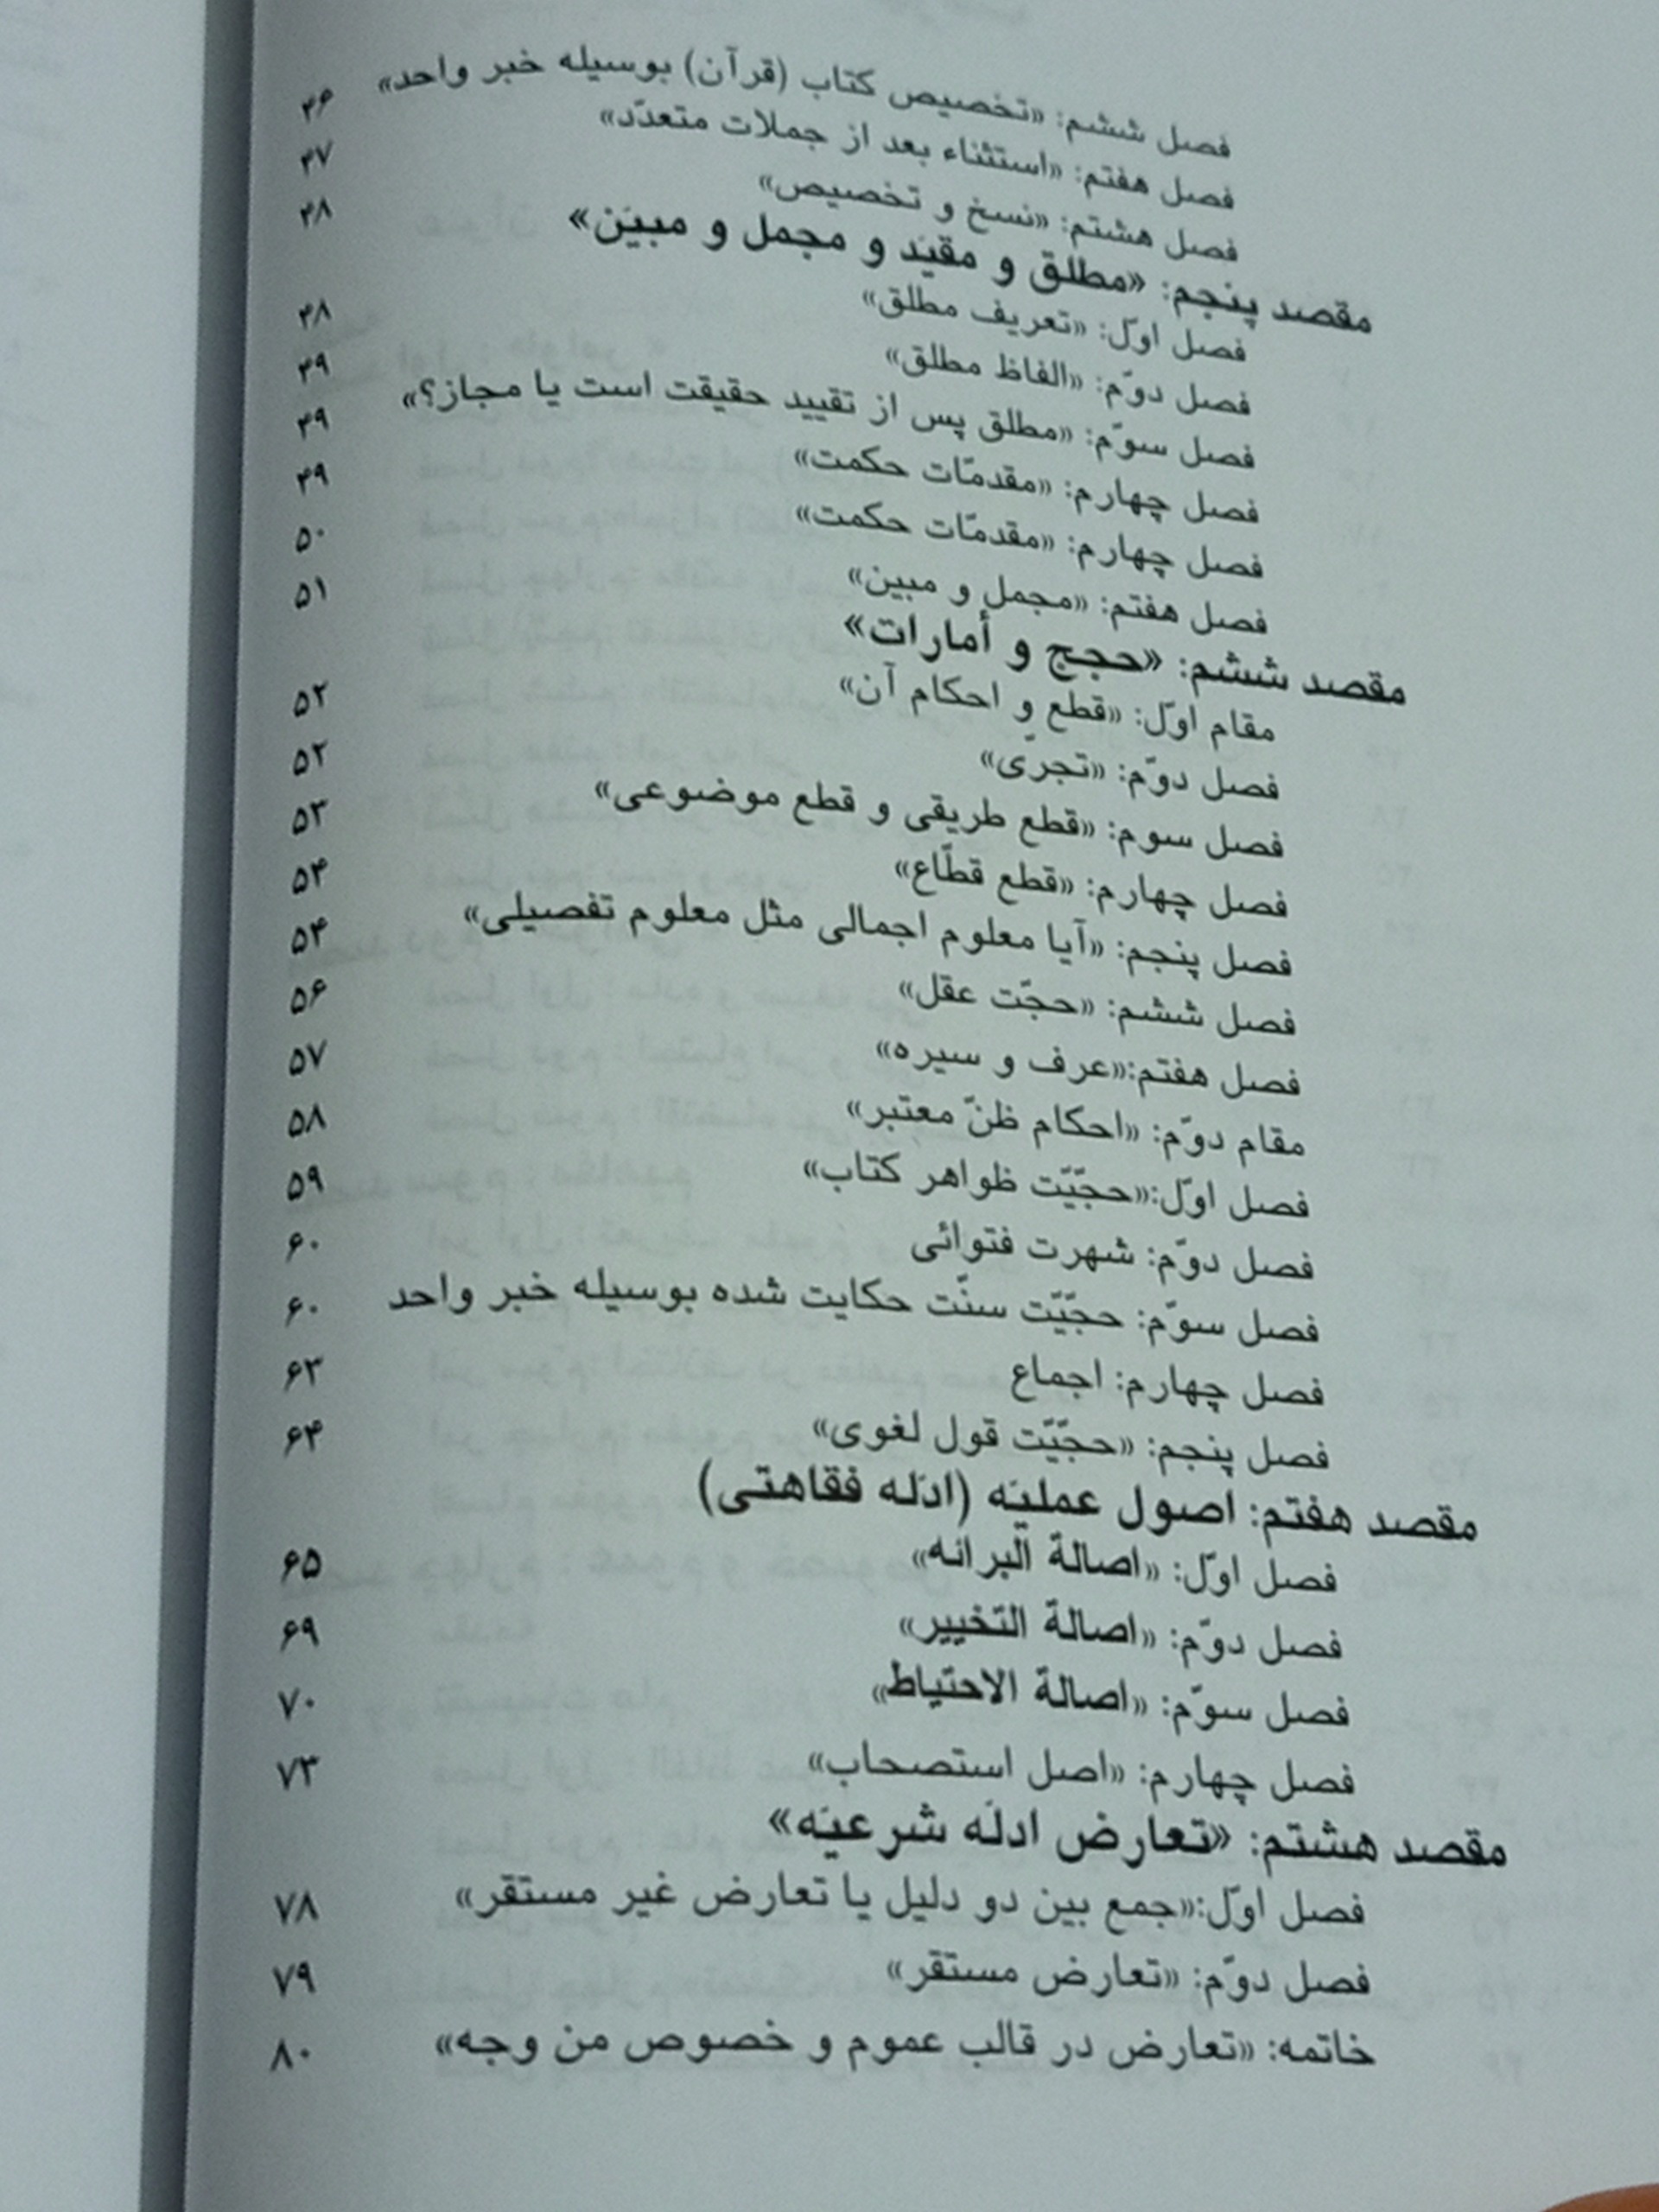 فصل ششم: «تخصیص کتاب (قرآن) بوسیله خبر واحد» ۴۶
فصل هفتم: «استثناء بعد از جملات متعدّد» ۴۷
فصل هشتم: «نسخ و تخصیص» ۴۸
مقصد پنجم: «مطلق و مقیّد و مجمل و مبیّن»
فصل اوّل: «تعریف مطلق» ۴۸
فصل دوّم: «الفاظ مطلق» ۴۹
فصل سوّم: «مطلق پس از تقیید حقیقت است یا مجاز؟» ۴۹
فصل چهارم: «مقدمّات حکمت» ۴۹
فصل چهارم: «مقدمّات حکمت» ۵۰
فصل هفتم: «مجمل و مبین» ۵۱
مقصد ششم: «حجج و أمارات»
مقام اوّل: «قطع و احکام آن» ۵۲
فصل دوّم: «تجرّی» ۵۲
فصل سوم: «قطع طریقی و قطع موضوعی» ۵۳
فصل چهارم: «قطع قطّاع» ۵۴
فصل پنجم: «آیا معلوم اجمالی مثل معلوم تفصیلی» ۵۴
فصل ششم: «حجّت عقل» ۵۶
فصل هفتم:«عرف و سیره» ۵۷
مقام دوّم: «احکام ظنّ معتبر» ۵۸
فصل اوّل:«حجیّت ظواهر کتاب» ۵۹
فصل دوّم: شهرت فتوائی ۶۰
فصل سوّم: حجیّت سنّت حکایت شده بوسیله خبر واحد ۶۰
فصل چهارم: اجماع ۶۳
فصل پنجم: «حجیّت قول لغوی» ۶۴
مقصد هفتم: اصول عملیّه (ادّله فقاهتی)
فصل اوّل: «اصالة البرائه» ۶۵
فصل دوّم: «اصالة التخییر» ۶۹
فصل سوّم: «اصالة الاحتیاط» ۷۰
فصل چهارم: «اصل استصحاب» ۷۳
مقصد هشتم: «تعارض ادلّه شرعیّه»
فصل اوّل:«جمع بین دو دلیل یا تعارض غیر مستقر» ۷۸
فصل دوّم: «تعارض مستقر» ۷۹
خاتمه: «تعارض در قالب عموم و خصوص من وجه» ۸۰